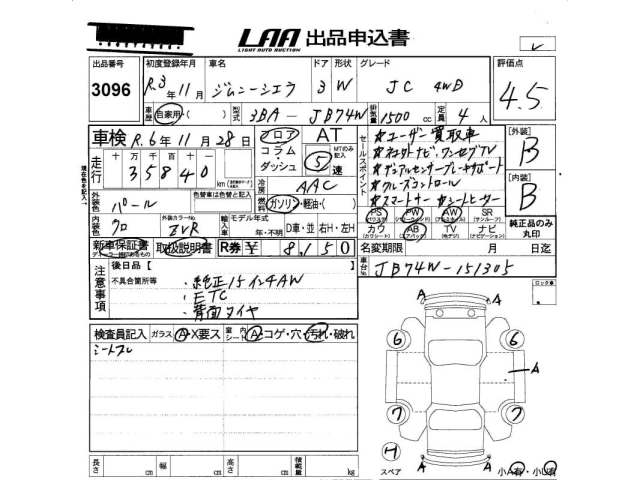 LAA 出品申込書
LIGHT AUTO AUCTION
出品番号 初度登録年月 車名 ドア 形状 グレード 評価点
3096 R.3年11月 ジムニーシエラ 3 W JC 4WD 4.5
車歴 自家用・( ) 型式 3BA-JB74W 排気量 1500 cc 定員 4人
車検 R.6年11月28日 フロア AT
コラム・ダッシュ 5 MTのみ記入 速
セールスポイント
☆ユーザー買取車
☆ナビ・ワンセグTV
☆デュアルセンサーブレーキサポート
☆クルーズコントロール
☆スマートキー ☆シートヒーター
[外装] B
[内装] B
走行 十万千百十
35840 km
冷房 AAC
燃料 ガソリン・軽油・( )
外装色 パール 色替車は色替と記入
内装色 クロ 外装カラーNo. ZVR
輸入車 モデル年式 年・不明 D車・並 右H・左H
PS PW AW SR
(パワステ) (パワーウィンドウ) (アルミ) (サンルーフ)
カワ AB TV ナビ
(革シート) (エアバック) (電視) (ナビゲーション)
純正品のみ丸印
現在色を記入
新車保証書 取扱説明書 R券 ¥ 8,150
名変期限 月 日迄
車台No. JB74W-151305
注意事項
後日品[ ]
不具合箇所等 ・純正15インチAW
・ETC
・背面タイヤ
ロック車
検査員記入 ガラス A・X要ス 室内シート A・コゲ・穴・汚れ・破れ
シートスレ
A A
6 6
A
7 7
H
スペア A A
小A有・小U有
長さ cm 幅 cm 高さ cm 積載量 kg